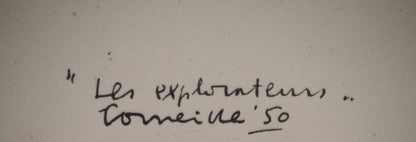 " Les explorateurs ..
Corneille '50